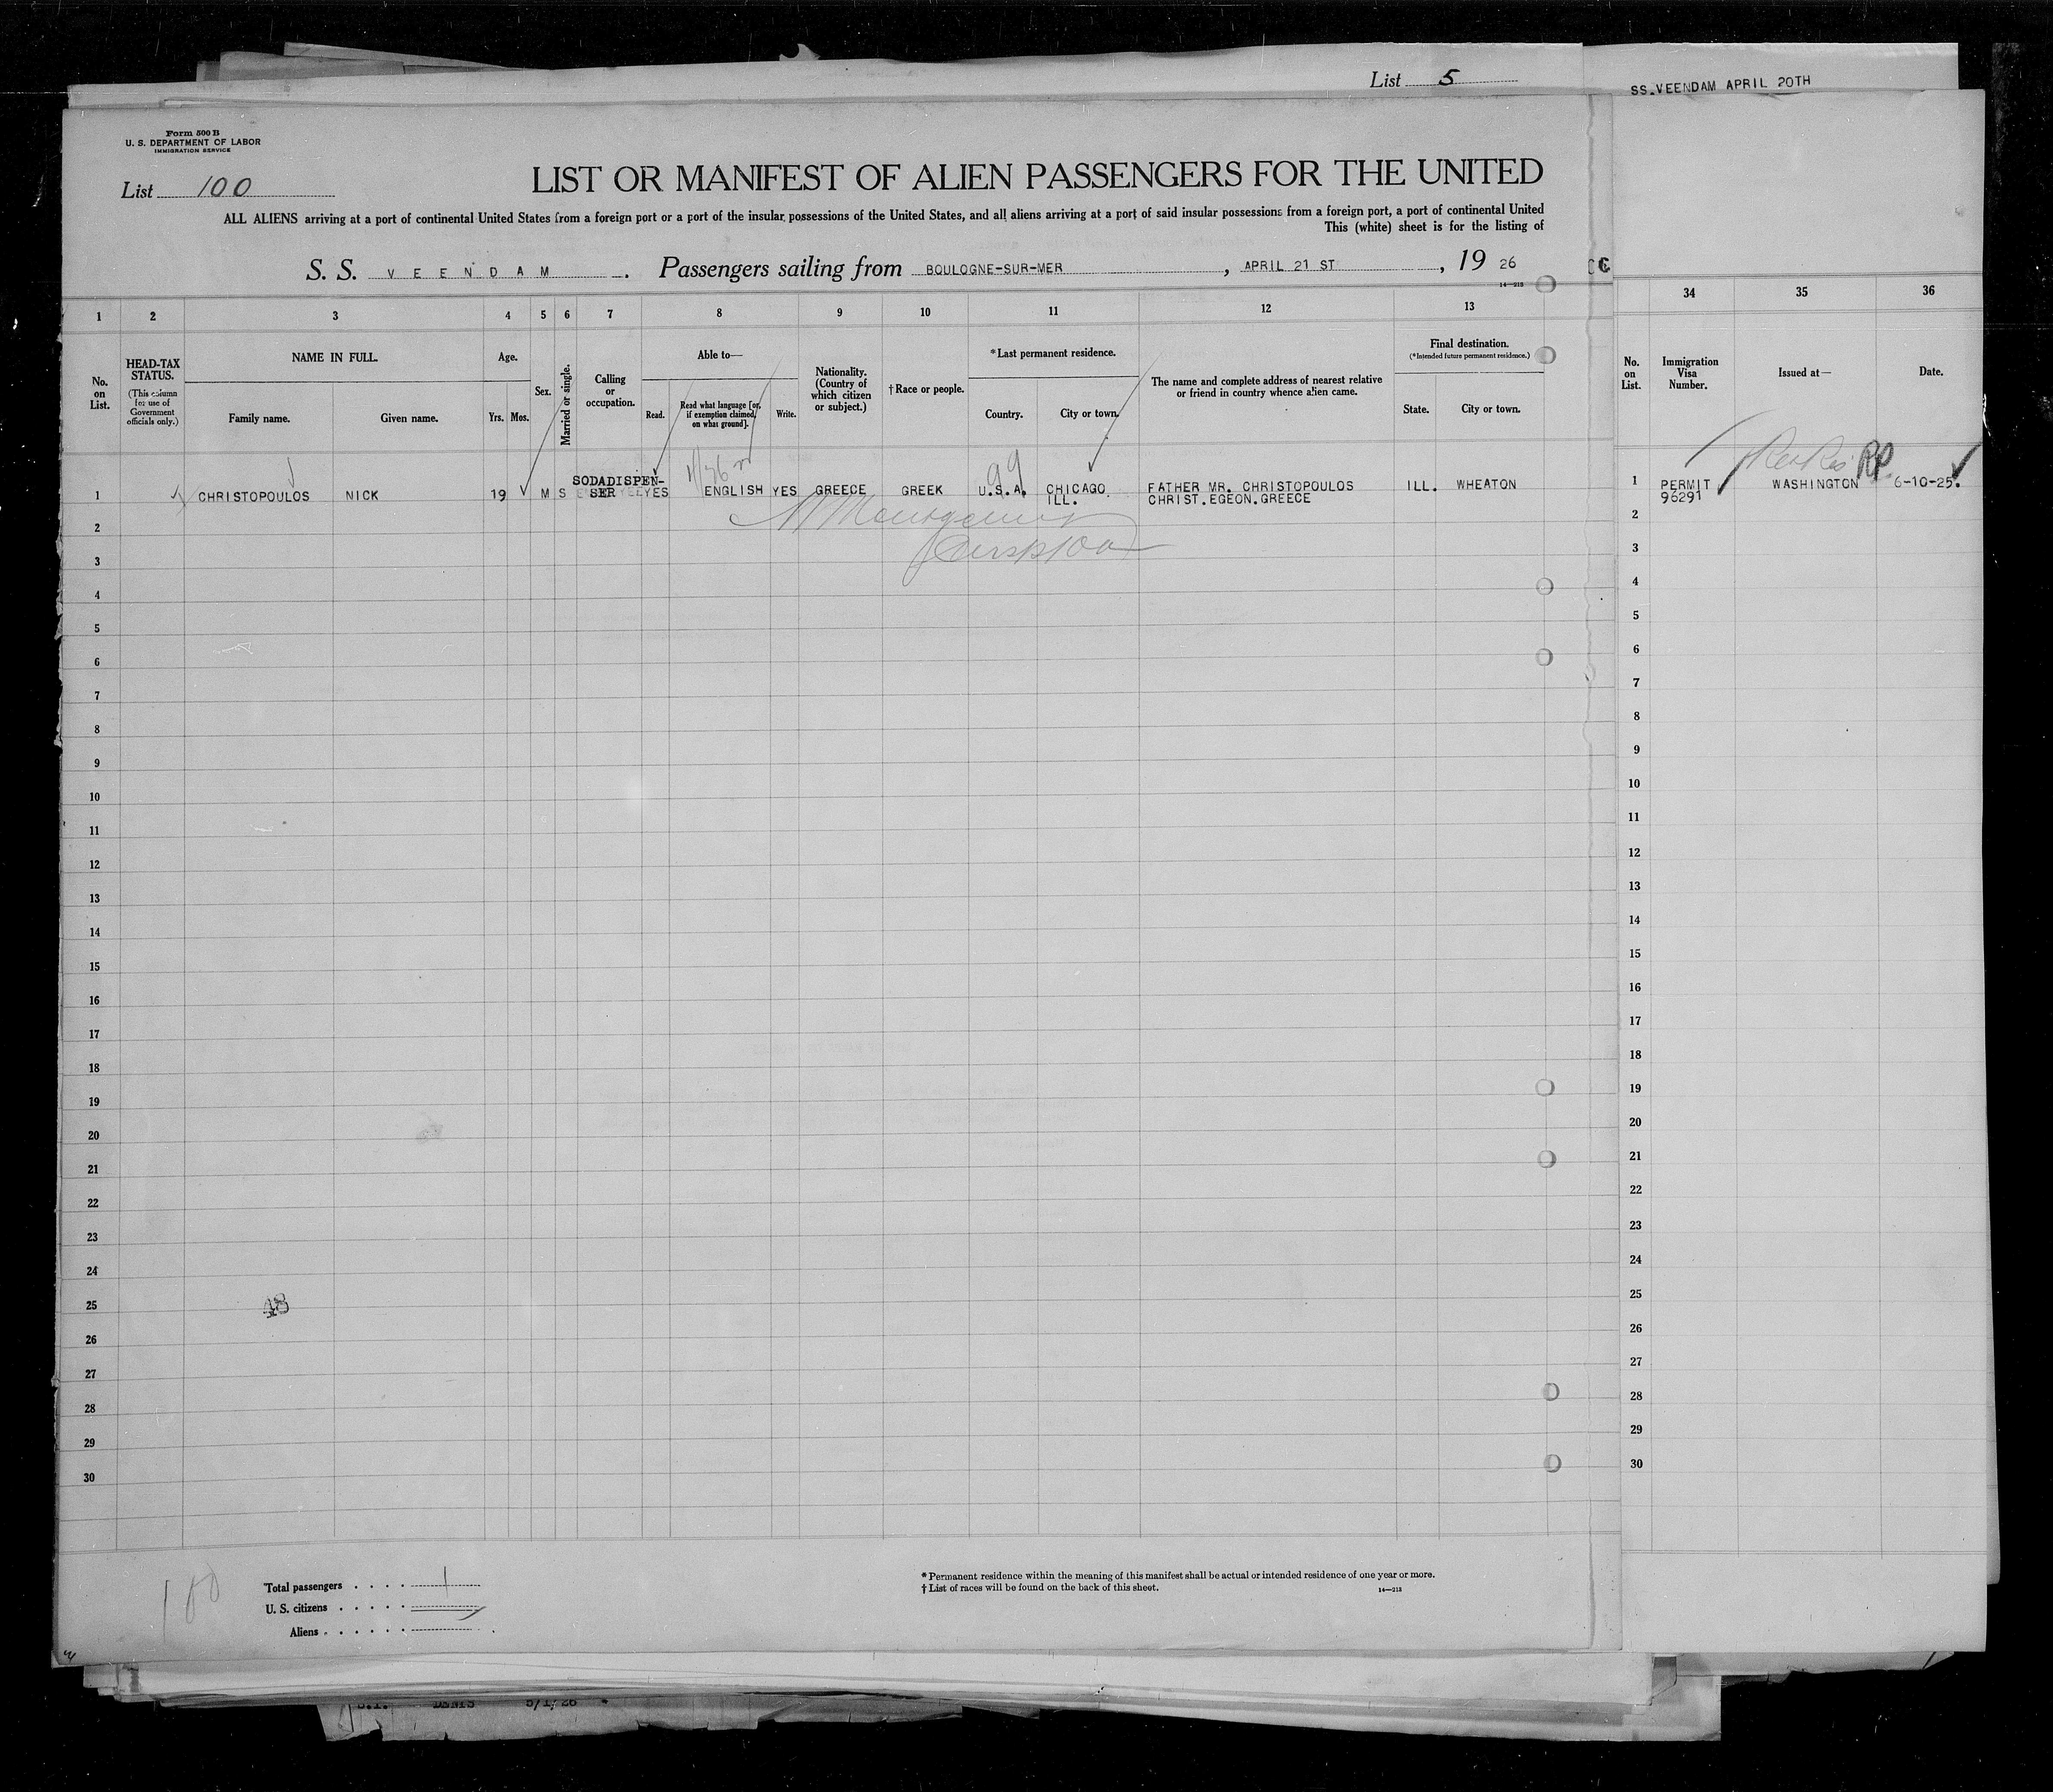 List 5
SS.VEENDAM APRIL 20TH
Form 500 B
U. S. DEPARTMENT OF LABOR
IMMIGRATION SERVICE
List 100
LIST OR MANIFEST OF ALIEN PASSENGERS FOR THE UNITED
ALL ALIENS arriving at a port of continental United States from a foreign port or a port of the insular possessions of the United States, and all aliens arriving at a port of said insular possessions from a foreign port, a port of continental United
This (white) sheet is for the listing of
S. S. VEENDAM. Passengers sailing from BOULOGNE-SUR-MER, APRIL 21 ST, 19 26
14—213
1 2 3 4 5 6 7 8 9 10 11 12 13 34 35 36
No. on List.
HEAD-TAX STATUS.
(This column for use of Government officials only.)
NAME IN FULL.
Family name. Given name.
Age.
Yrs. Mos.
Sex.
Married or single.
Calling or occupation.
Able to—
Read. Read what language [or, if exemption claimed, on what ground]. Write.
Nationality. (Country of which citizen or subject.)
† Race or people.
* Last permanent residence.
Country. City or town.
The name and complete address of nearest relative or friend in country whence alien came.
Final destination.
(* Intended future permanent residence.)
State. City or town.
No. on List.
Immigration Visa Number.
Issued at—
Date.
1 CHRISTOPOULOS NICK 19 M S SODADISPEN-SER YES ENGLISH YES GREECE GREEK U.S.A. CHICAGO ILL. FATHER MR. CHRISTOPOULOS CHRIST.EGEON.GREECE ILL. WHEATON
1 PERMIT 96291 WASHINGTON 6-10-25.
RP
99
2 2
3 3
4 4
5 5
6 6
7 7
8 8
9 9
10 10
11 11
12 12
13 13
14 14
15 15
16 16
17 17
18 18
19 19
20 20
21 21
22 22
23 23
24 24
25 48 25
26 26
27 27
28 28
29 29
30 30
100
Total passengers . . . . 1
U. S. citizens . . . . .
Aliens . . . . . .
* Permanent residence within the meaning of this manifest shall be actual or intended residence of one year or more.
† List of races will be found on the back of this sheet.
14—213
DENIS 5/1/26